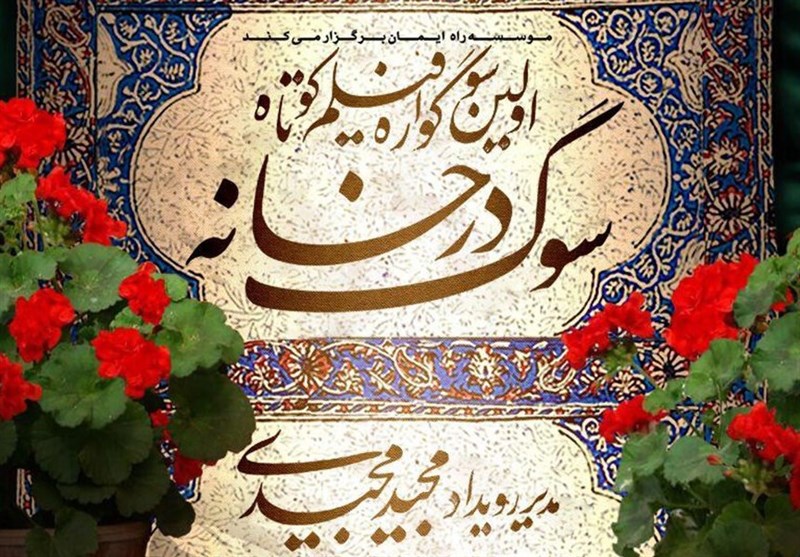 موسسه راه ایمان برگزار می‌کند
اولین سوگواره فیلم کوتاه
سوگ در خانه
مدیر رویداد مجید مجیدی